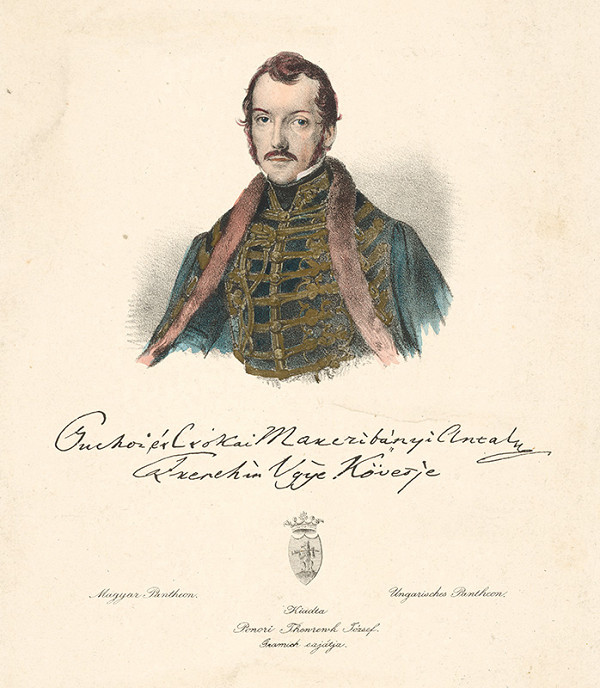 Puchoi és Csókai Marczibányi Antal
Trenchin Vgÿe Követje
Magyar Pantheon.
Ungarisches Pantheon.
Kiadta
Ponori Thewrewk József.
sajátja.